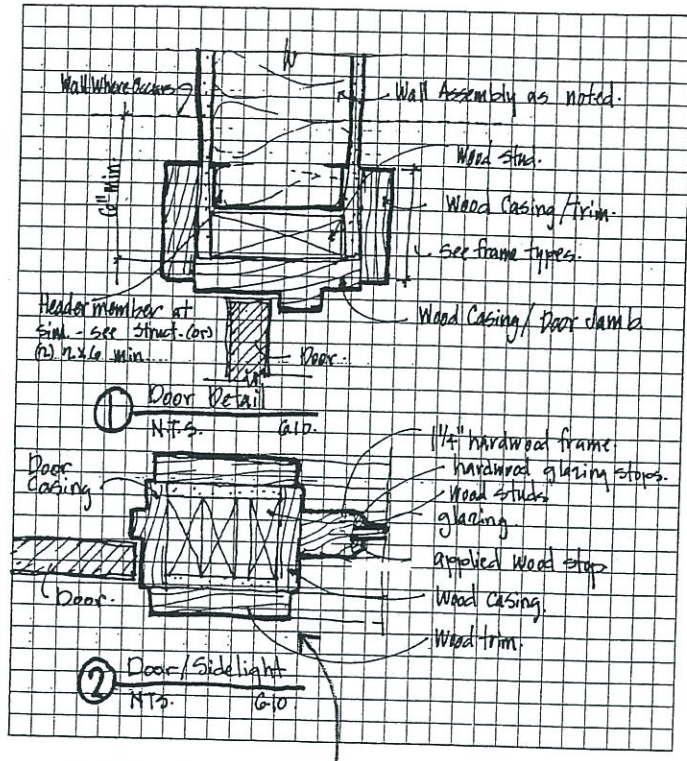 Wall Where Occurs
Wall Assembly as noted.
Wood Stud.
6" Min.
Wood Casing/trim.
see frame types.
Header member at
Sim. - see Struct. (or)
(2) 2x6 min.
Wood Casing/Door Jamb
Door.
1 Door Detail
N.T.S.
Door
Casing
1 1/4" hardwood frame.
hardwood glazing stops.
Wood studs
glazing.
applied wood stop
Wood Casing.
Wood trim.
Door.
2 Door/Sidelight
NTS.